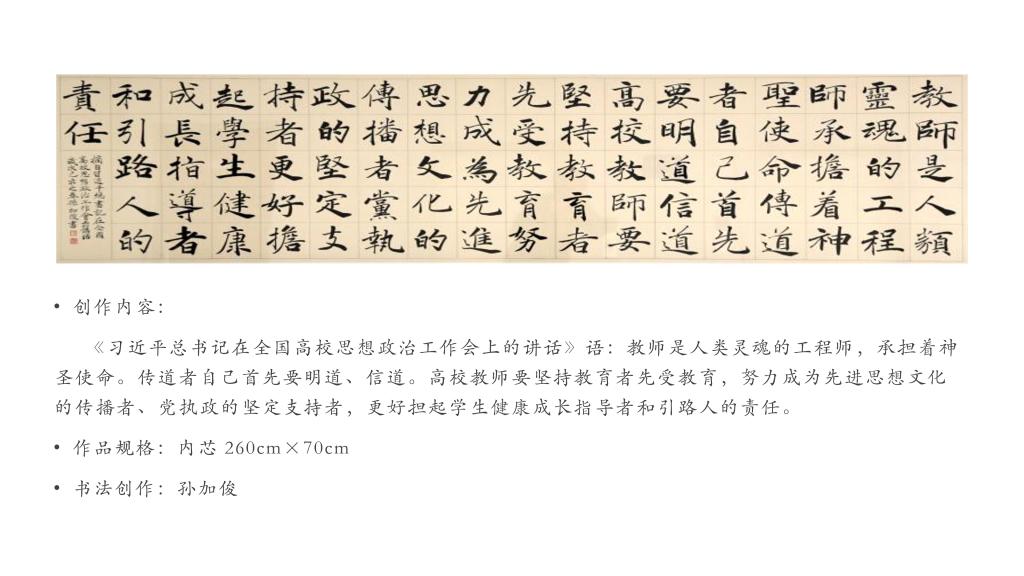 教師是人類
靈魂的工程
師承擔着神
聖使命傳道
者自己首先
要明道信道
高校教師要
堅持教育者
先受教育努
力成為先進
思想文化的
傳播者黨執
政的堅定支
持者更好擔
起學生健康
成長指導者
和引路人的
責任
摘自習近平總書記在全國
高校思想政治工作會上的講話
歲次己亥之春孫加俊書
• 创作内容：
《习近平总书记在全国高校思想政治工作会上的讲话》语：教师是人类灵魂的工程师，承担着神
圣使命。传道者自己首先要明道、信道。高校教师要坚持教育者先受教育，努力成为先进思想文化
的传播者、党执政的坚定支持者，更好担起学生健康成长指导者和引路人的责任。
• 作品规格：内芯 260cm×70cm
• 书法创作：孙加俊